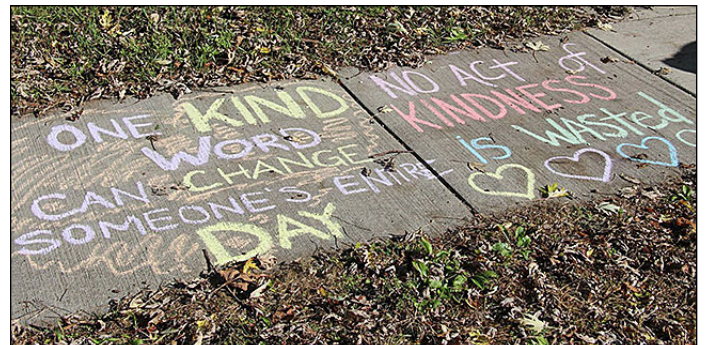 ONE KIND
WORD
CAN CHANGE
SOMEONE'S ENTIRE
DAY
NO ACT of
KINDNESS
is WASTED